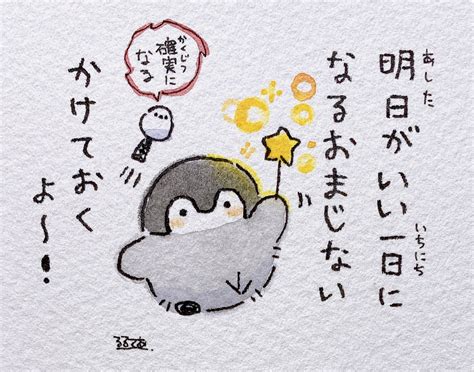 明日がいい一日に
あした
いちにち
なるおまじない
かけておく
よ〜！
確実に
かくじつ
なる
るるてあ